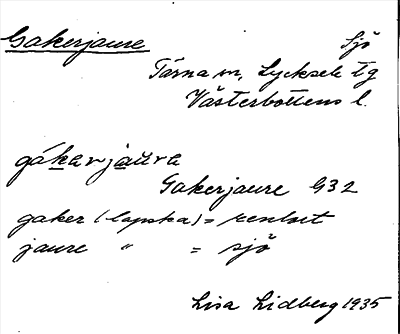 Gakerjaure Sjö
Tärna sn, Lycksele tg
Västerbottens l.
gákarjaŭra
Gakerjaure G32
gaker (lapska) =
jaure " = sjö
Lisa Lidberg 1935